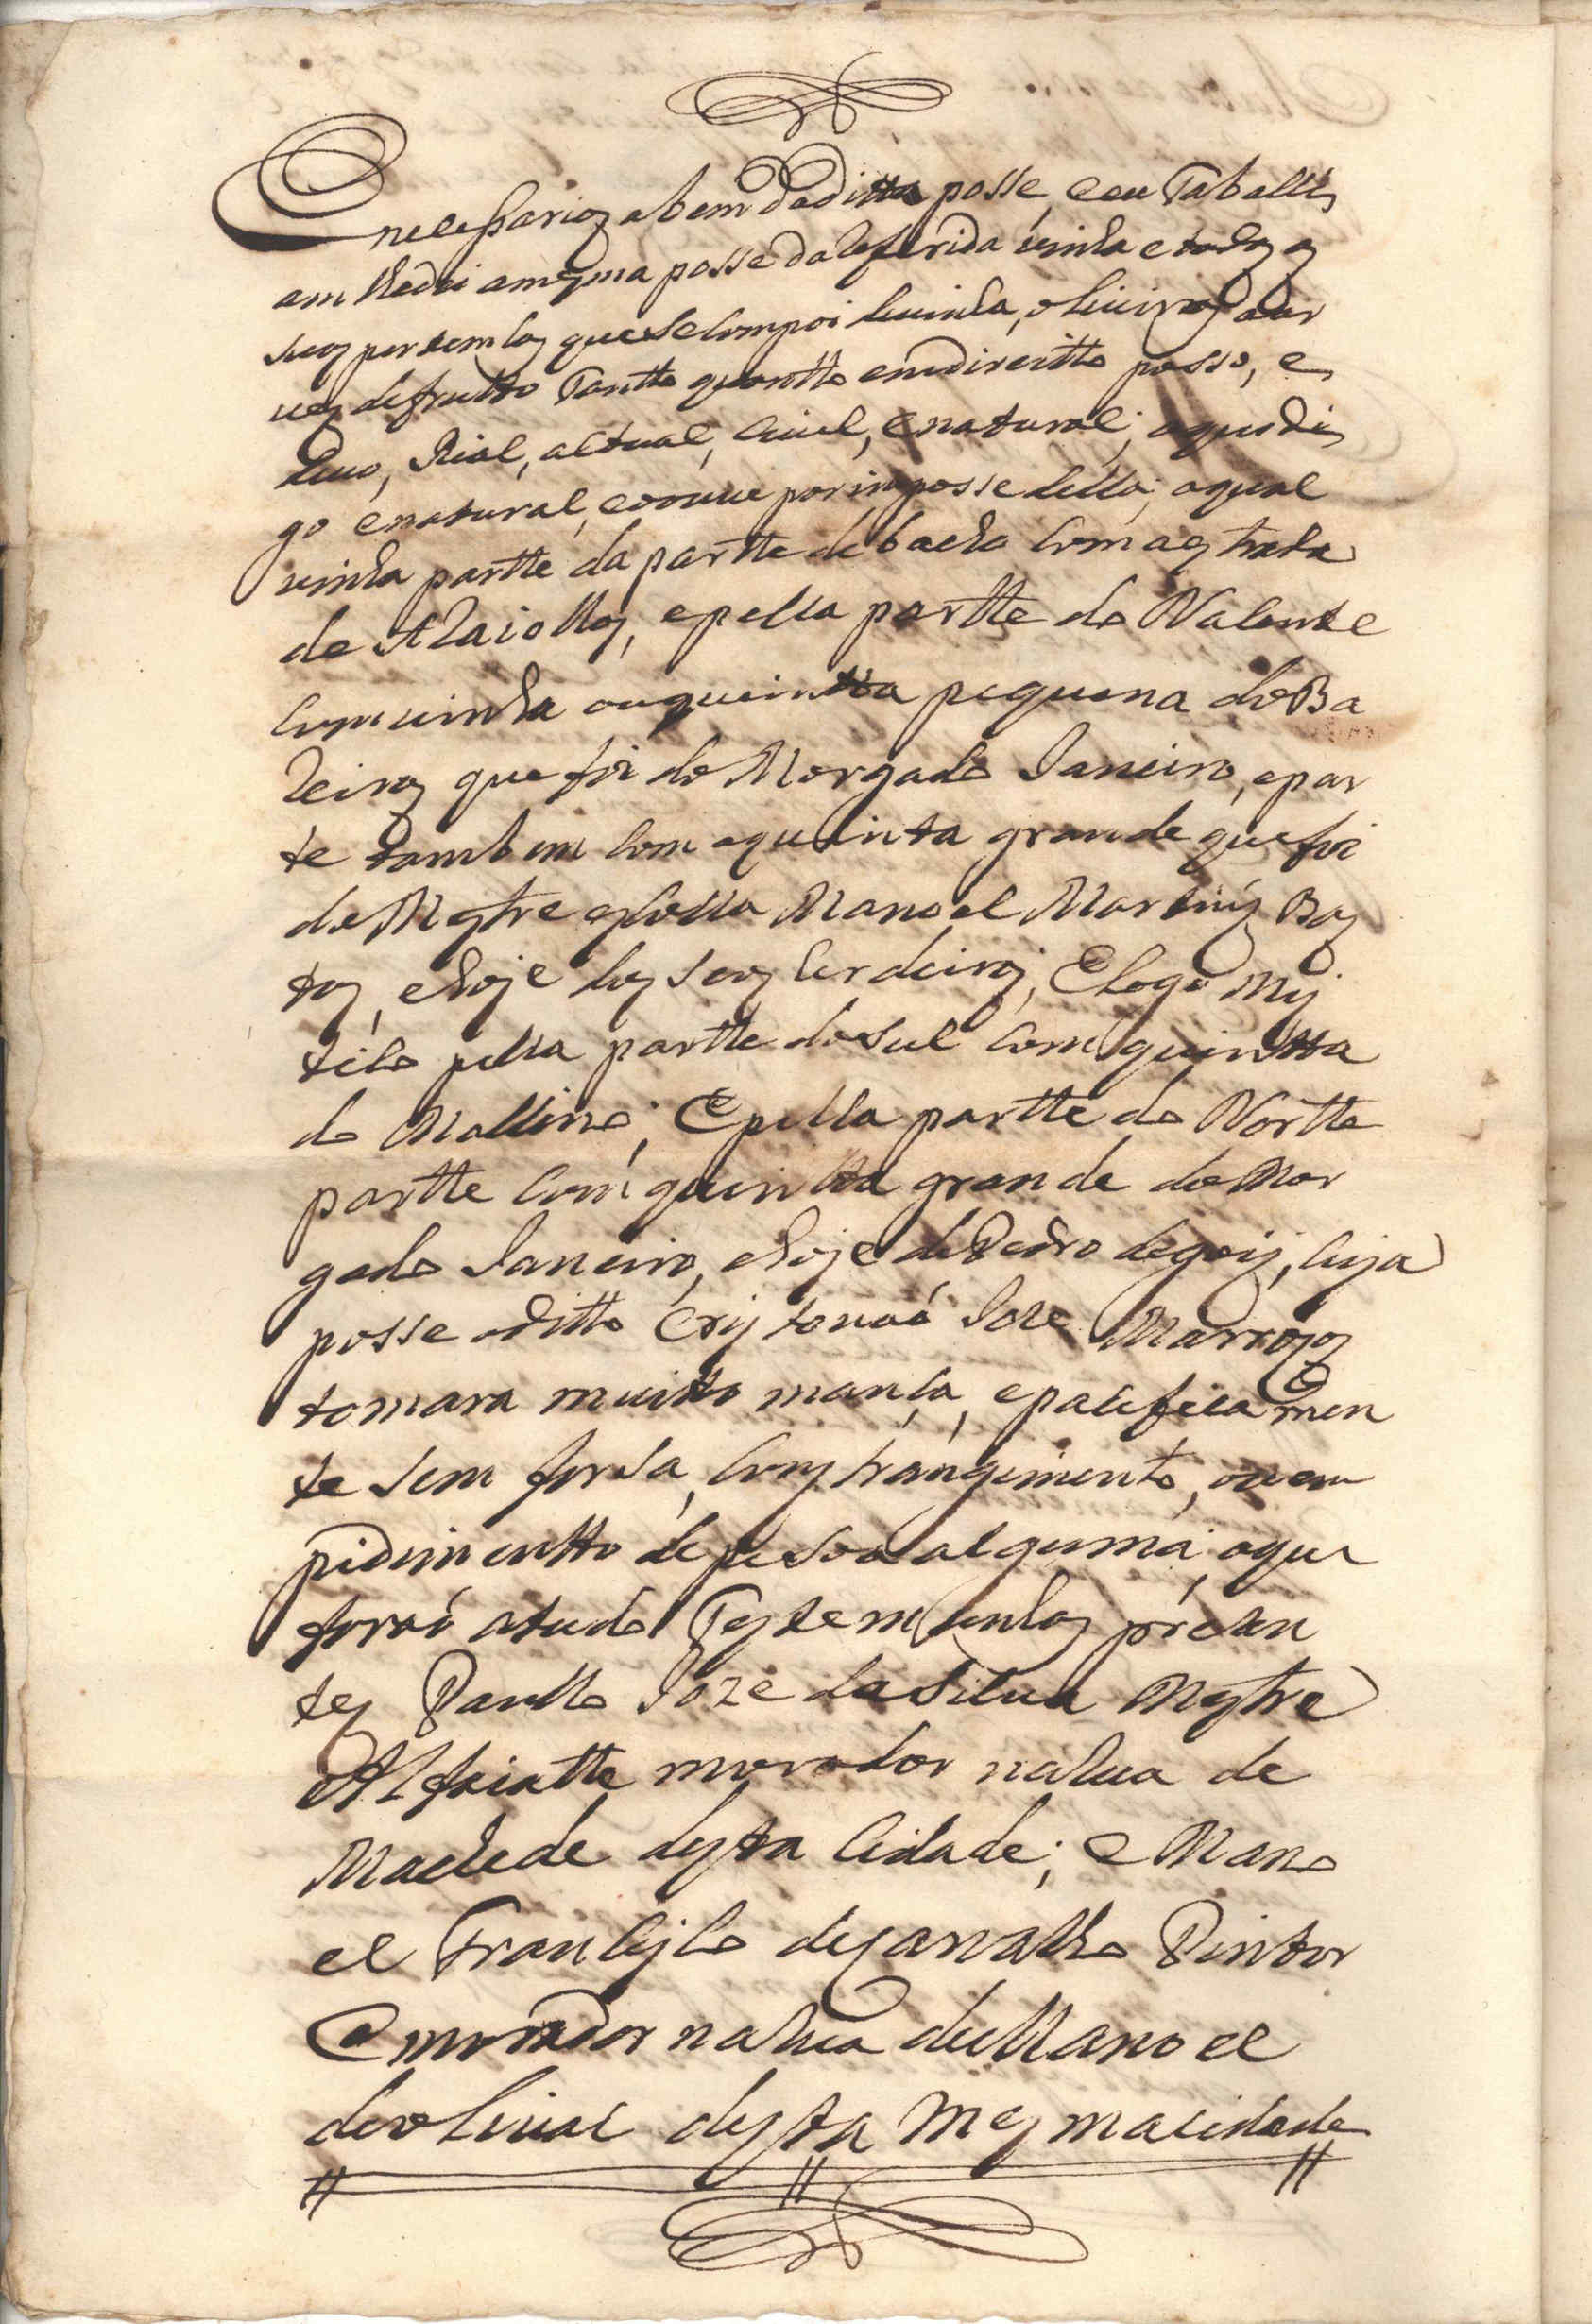 necessarios abem da ditta posse, e eu Taballiaó
em lhedei amesma posse da Referida vinha etodos os
seus pertenSas que seCompoi de vinha, oliueiras aur
ues defrutto Tantto quantto emdireitto posso, e
deuo, Rial, actual, ciuel, enatural; aqual di
go enatural, eoouue por impossedella; aqual
vinha partte da partte debaicho Com aestrada
de ARaiollos, epella partte do Nalente
Com vinha ouquintta pequena do Ba
Reiros que foi do Morgado Janeiro, epar
te tambem Com aquinta grande que foi
do Mestre escolla Manoel Martins Bas
tos, ehoje dos seus erdeiros, Elogo mis
tico pella partte dosul Com quintta
do Mollino; Epella partte do Nortte
partte Com quintta grande do Mor
gado Janeiro, ehoje dePedro degois, cuja
posse oditto Cristouaó Joze Marrosos
tomara muitto mança, epacificamen
te sem forsa, Constrangimento, ou em
pidimentto de pesoa alguma; aque
foraó atudo Testemunhas prezen
tes Paullo Joze daSilua Mestre
Alfaiatte morador naRua de
Machede desta Cidade; e Mano
el Francisco deCarualho Pintor
Emorador naRua deManoel
deoliual desta Mesmacidade